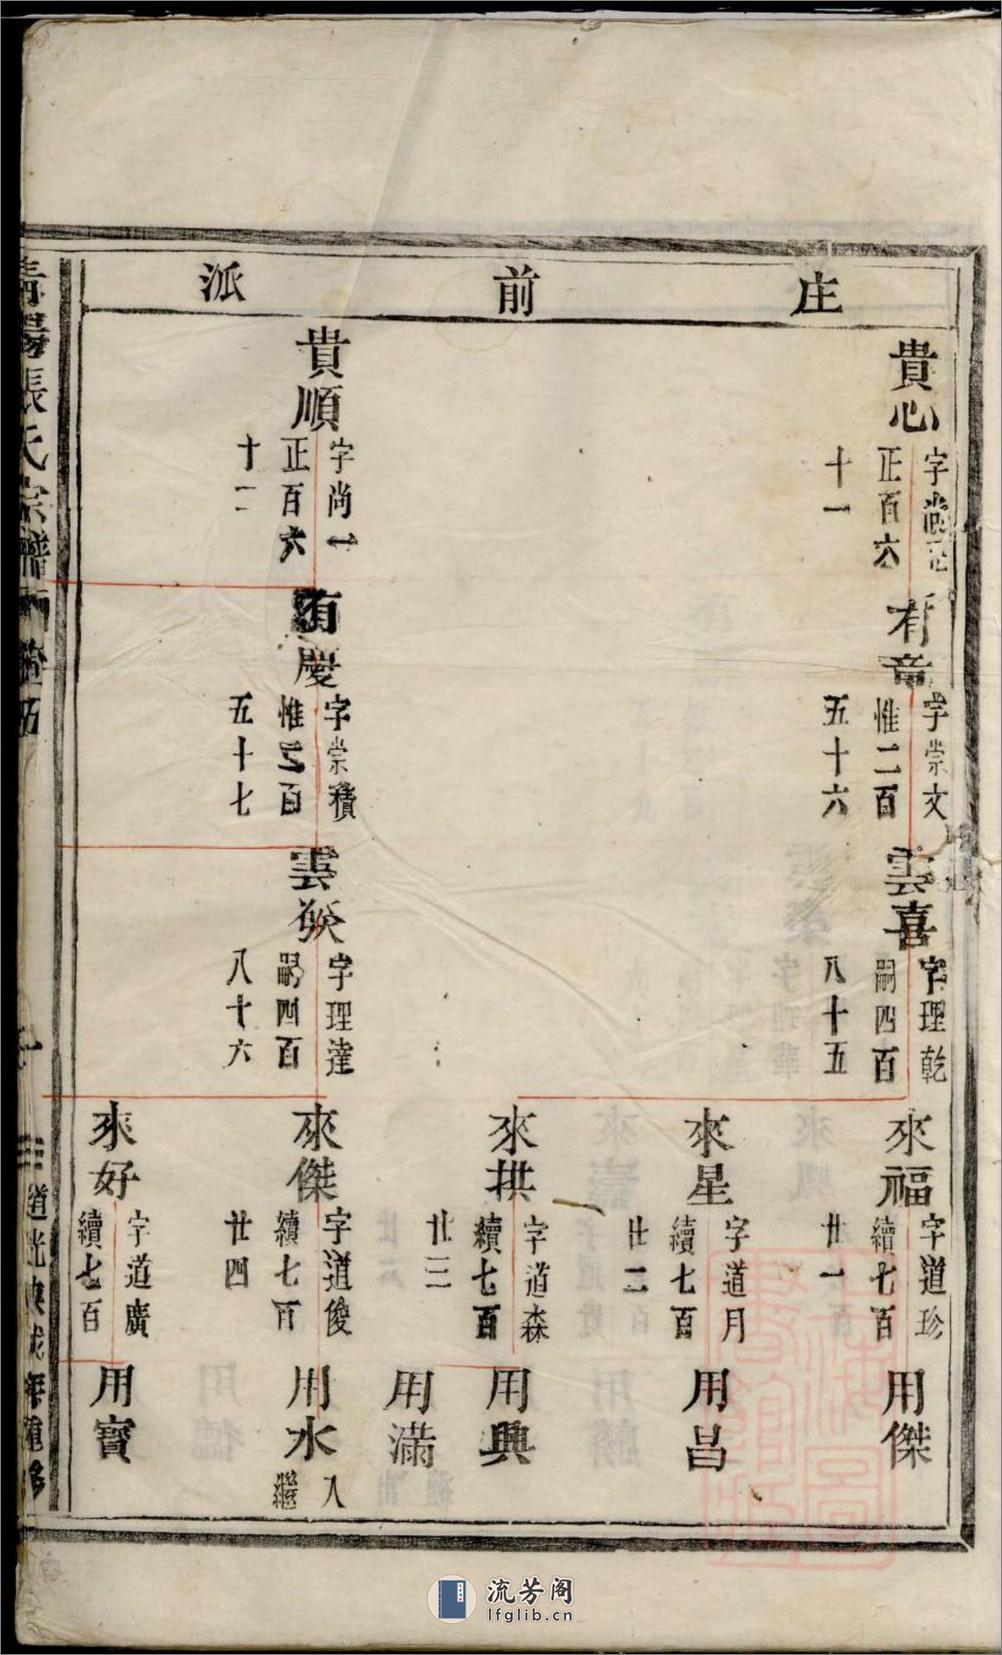 庄前派
貴心
字尚
正百六
十一
有章
字崇文
惟二百
五十六
雲喜
字理乾
嗣四百
八十五
來福
字道珍
續七百
廿一
用傑
來星
字道月
續七百
廿二
用昌
來拱
字道森
續七百
廿三
用興
用滿
貴順
字尚一
正百六
十二
有慶
字崇積
惟二百
五十七
雲
字理達
嗣四百
八十六
來傑
字道俊
續七百
廿四
用水
入
繼
來好
字道廣
續七百
用寳
清陽張氏宗譜
道光庚戌年重修
流芳阁
lfglib.cn